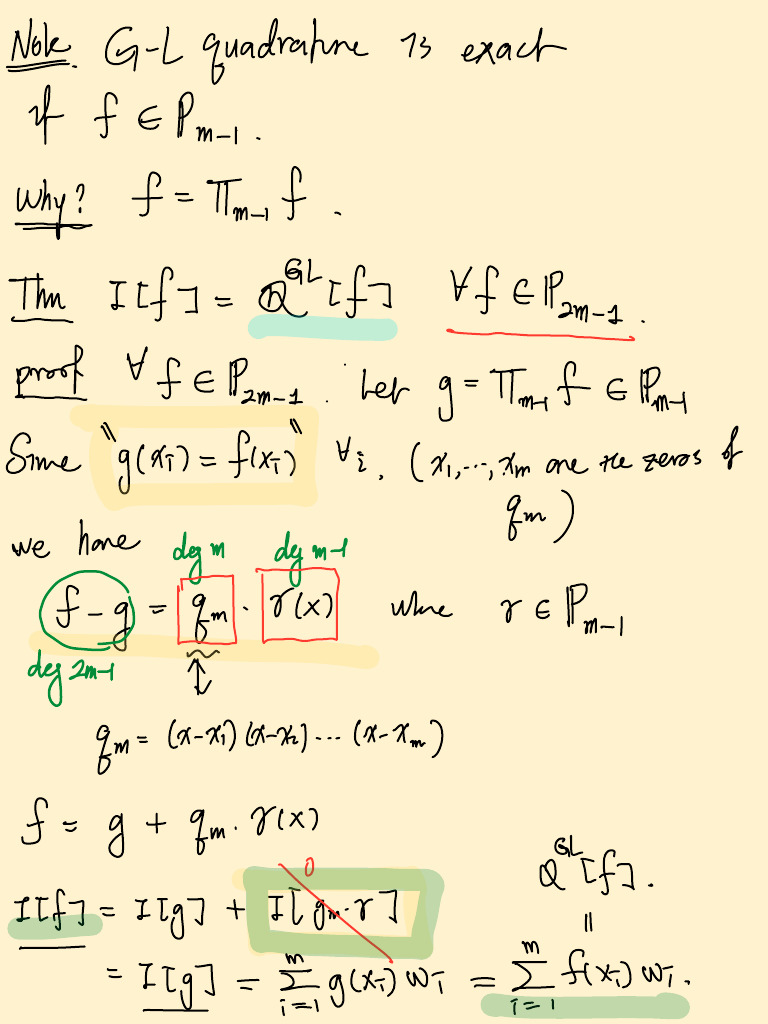 Note. G-L quadrature is exact
if f ∈ ℙ_{m-1}.
Why? f = Π_{m-1} f.
Thm I[f] = Q^{GL}[f] ∀f ∈ ℙ_{2m-1}.
proof ∀ f ∈ ℙ_{2m-1}. Let g = Π_{m-1} f ∈ ℙ_{m-1}
Since "g(x_i) = f(x_i)" ∀i. (x_1, ..., x_m are the zeros of
q_m)
we have
deg m deg m-1
f - g = q_m · r(x) where r ∈ ℙ_{m-1}
deg 2m-1
↕
q_m = (x-x_1)(x-x_2)...(x-x_m)
f = g + q_m · r(x)
0
Q^{GL}[f].
I[f] = I[g] + I[q_m · r]
=
= I[g] = ∑_{i=1}^{m} g(x_i) w_i = ∑_{i=1}^{m} f(x_i) w_i.